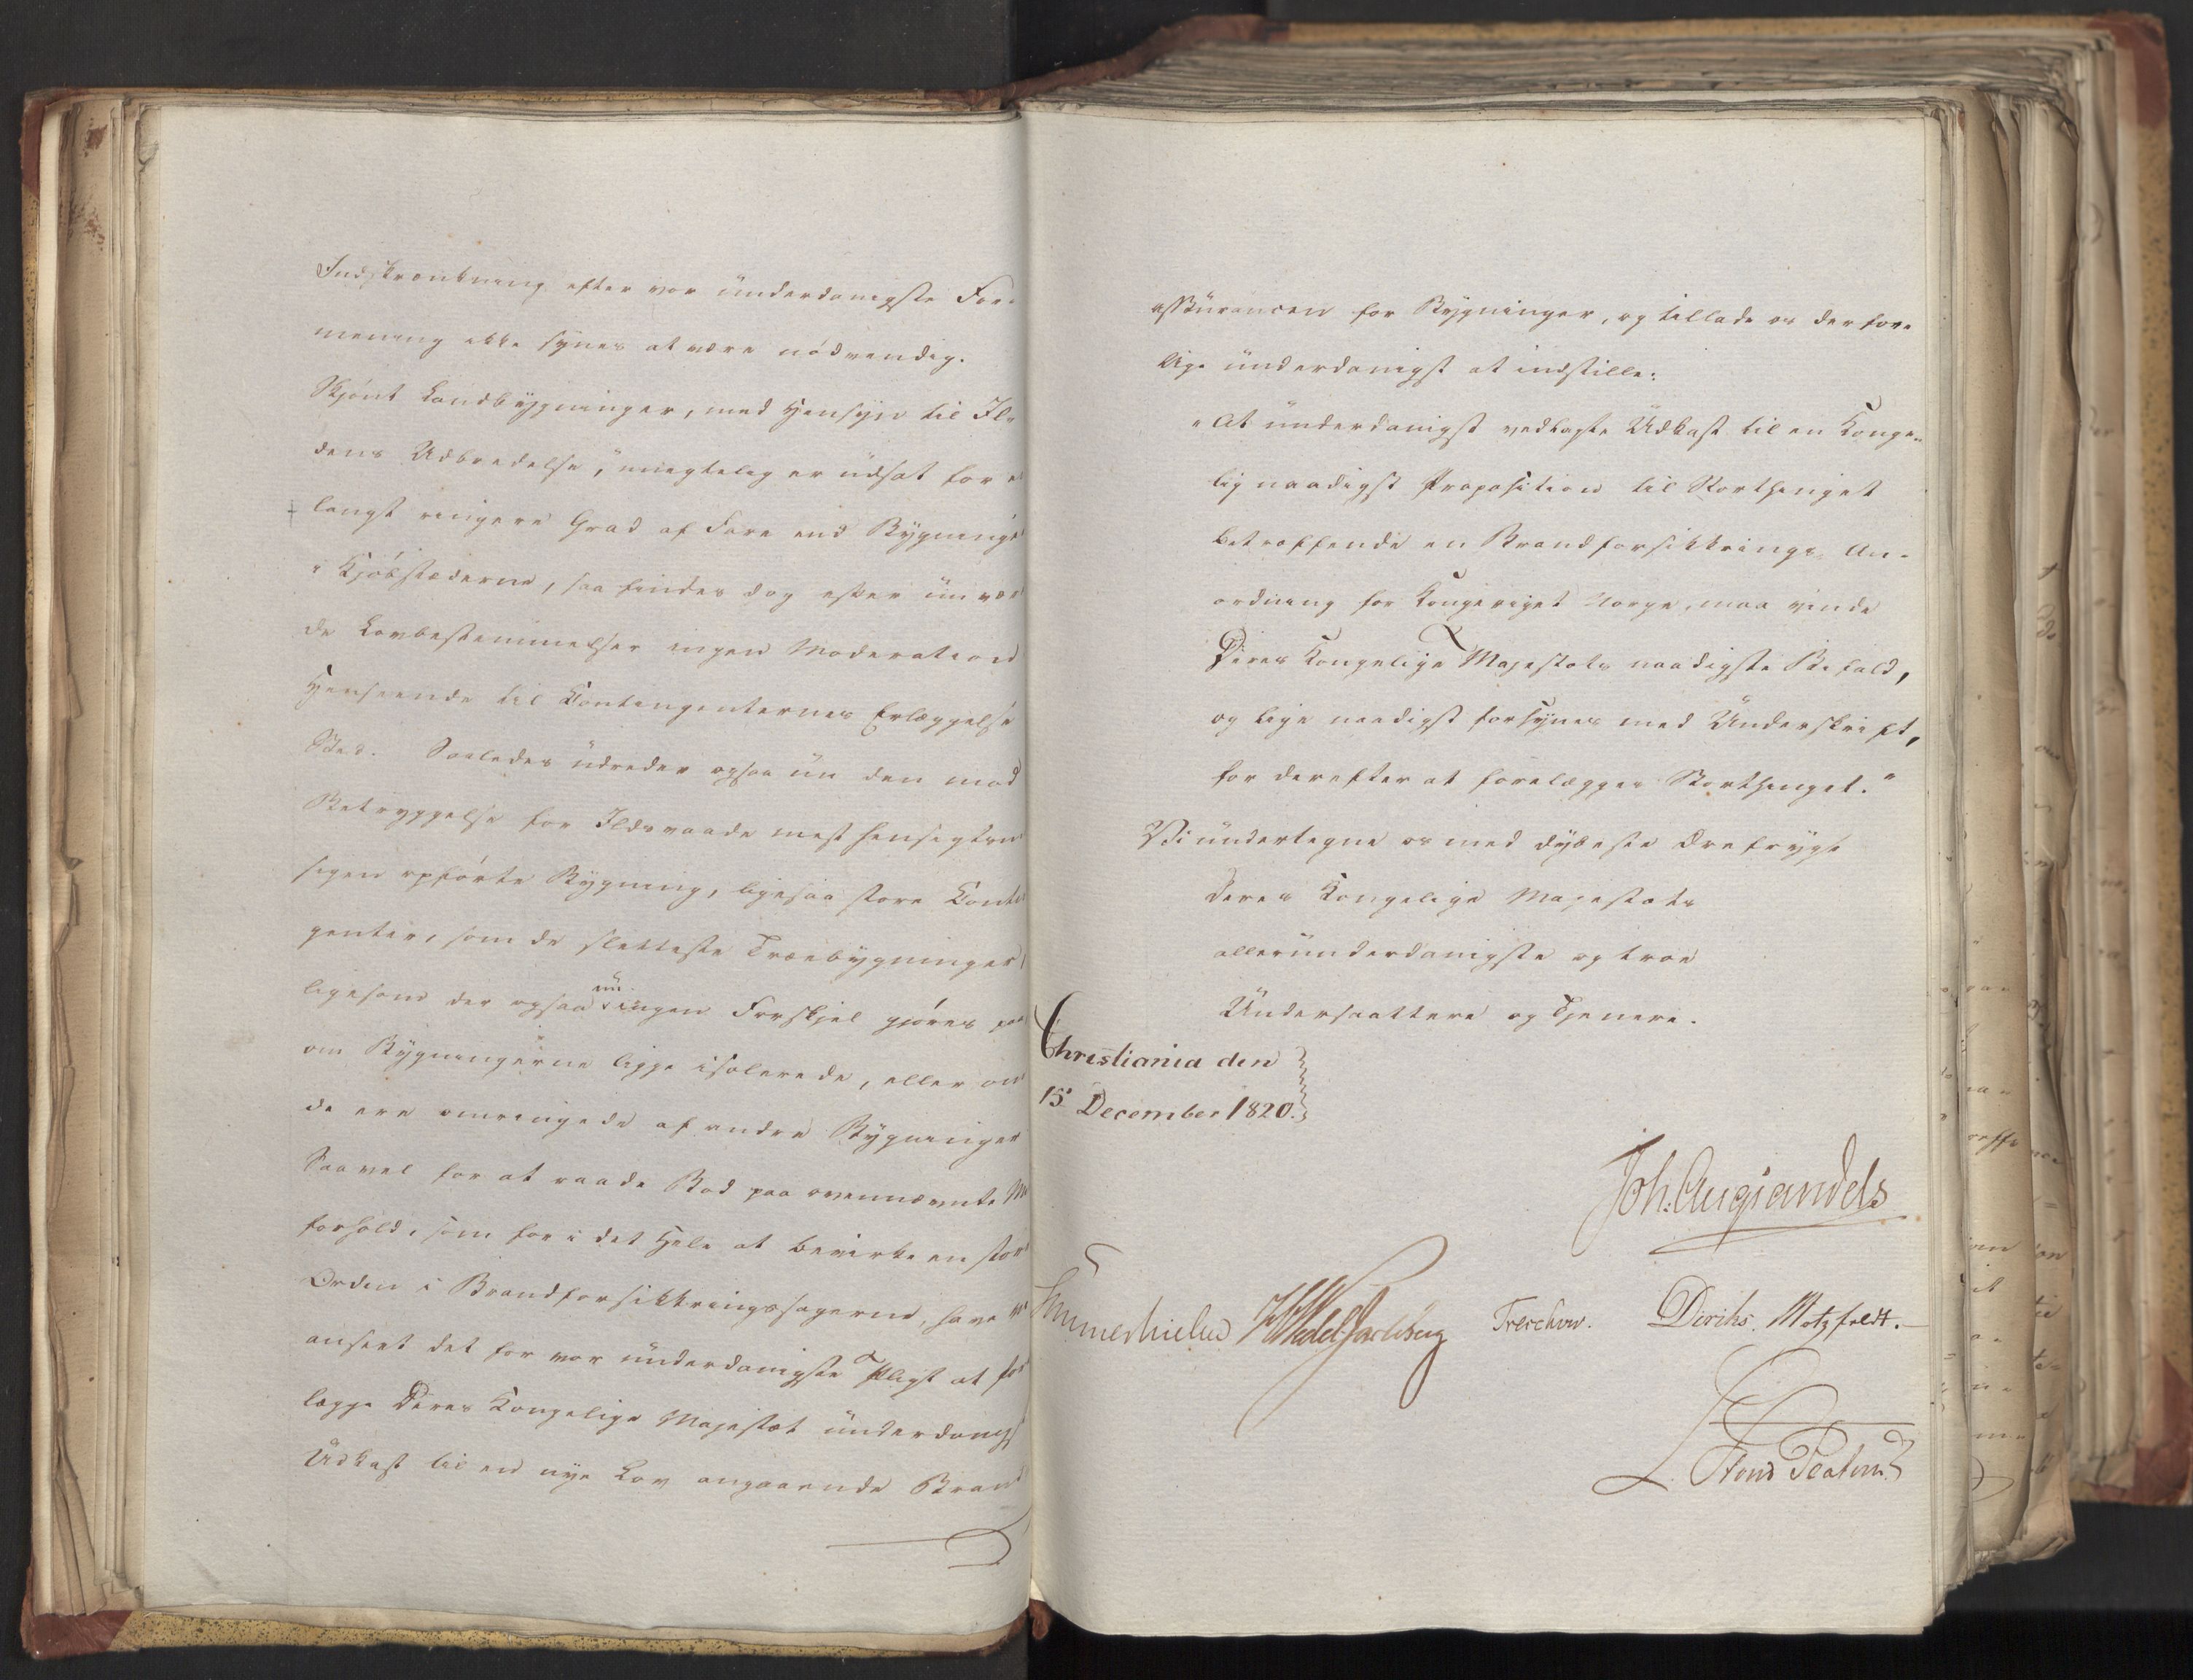 Indskrænkning efter vor underdanigste For-
mening ikke synes at være nödvendig.
Skjönt Landbygninger, med Hensyn til Il-
dens Udbredelse, unegtelig er udsat for e
langt ringere Grad af Fare end Bygninge
i Kjöbstæderne, saa findes dog efter nu væ
de Lovbestemmelser ingen Moderation
Henseende til Contingenternes Erlæggelse
Sted. Saaledes udreder ogsaa nu den mod
Betryggelse for Ildsvaade mest hensigtsm
sigen opförte Bygning, ligesaa store Conti
genter, som de sletteste Træebygninger
ligesom der ogsaa nu ingen Forskjel gjöres paa
om Bygningerne ligge isolerede, eller om
de ere omringede af andre Bygninger
Saavel for at raade Bod paa ovennævnte M
forhold, som for i det Hele at bevirke en stör
Orden i Brandforsikkringssagerne, have vi
anseet det for vor underdanigste Pligt at for
lægge Deres Kongelige Majestæt underdanigst
Udkast til en nye Lov angaaende Brand
assurancen for Bygninger, og tillade os derfore
lige underdanigst at indstille:
"At underdanigst vedlagte Udkast til en Konge-
lig naadigst Proposition til Storthinget
betreffende en Brandforsikkrings-An-
ordning for Kongeriget Norge, maa vinde
Deres Kongelige Majestæts naadigste Bifald,
og lige naadigst forsynes med Underskrift,
for derefter at forelægges Storthinget."
Vi undertegne os med dybeste Ærefrygt
Deres Kongelige Majestæts
allerunderdanigste og troe
Undersaattere og Tjenere.
Christiania den
15de December 1820.
Joh: Aug: Sandels
Sommerhielm HWedel Jarlsberg Treschow. Diriks. Motzfeldt.